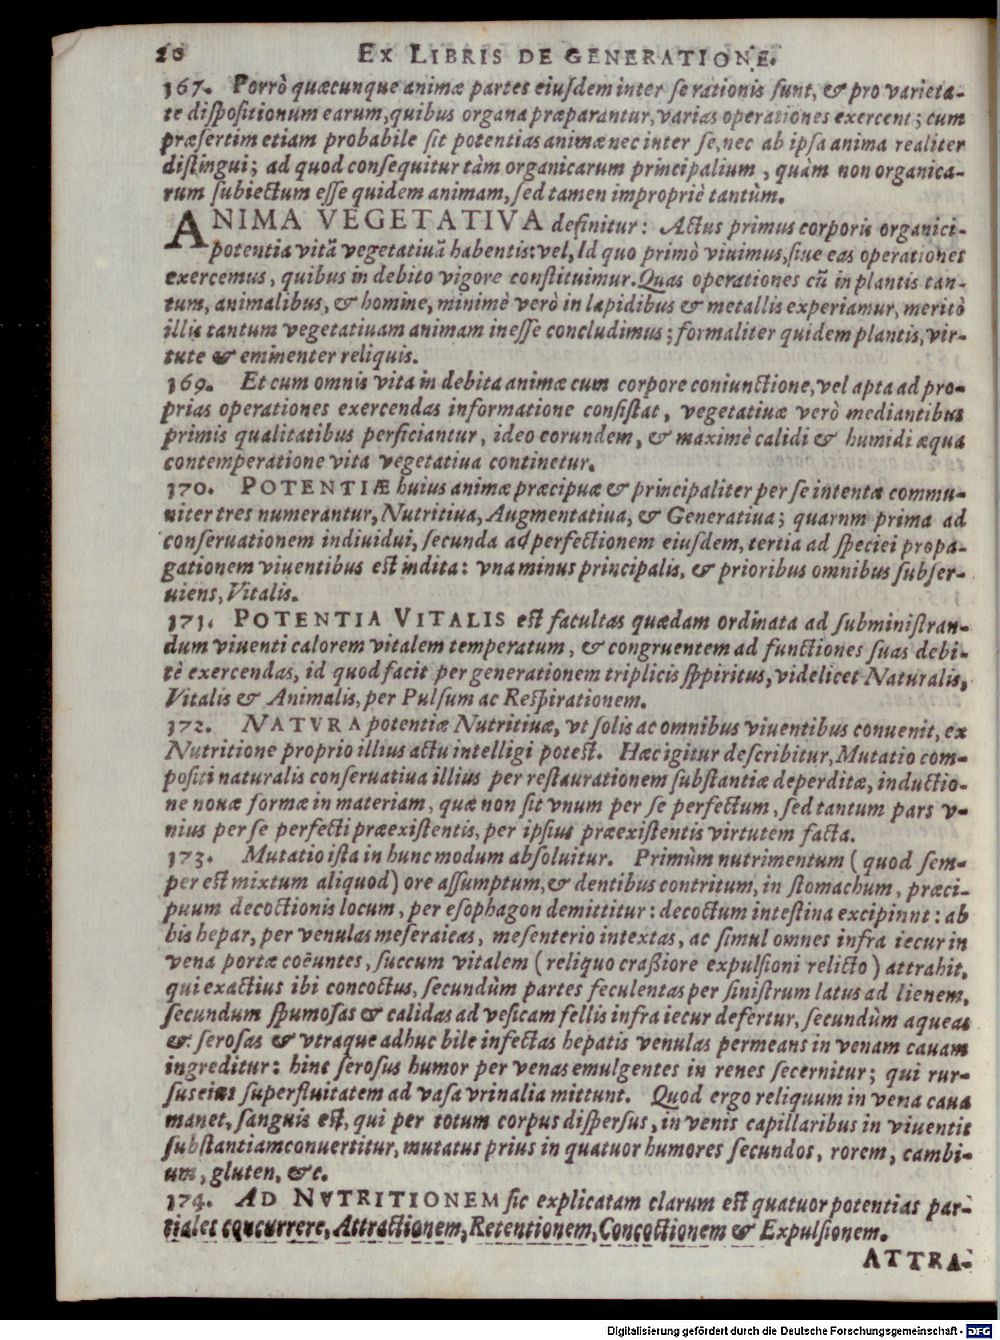 20 EX LIBRIS DE GENERATIONE.
167. Porrò quæcunque animæ partes eiuſdem inter ſe rationis ſunt, & pro varieta-
te diſpoſitionum earum, quibus organa præparantur, varias operationes exercent; cum
præſertim etiam probabile ſit potentias animæ nec inter ſe, nec ab ipſa anima realiter
diſtingui; ad quod conſequitur tàm organicarum principalium, quàm non organica-
rum ſubiectum eſſe quidem animam, ſed tamen impropriè tantùm.
ANIMA VEGETATIVA definitur: Actus primus corporis organici-
potentia vitã vegetatiuã habentis: vel, Id quo primò viuimus, ſiue eas operationes
exercemus, quibus in debito vigore conſtituimur. Quas operationes cũ in plantis tan-
tum, animalibus, & homine, minimè verò in lapidibus & metallis experiamur, meritò
illis tantum vegetatiuam animam ineſſe concludimus; formaliter quidem plantis, vir-
tute & eminenter reliquis.
169. Et cum omnis vita in debita animæ cum corpore coniunctione, vel apta ad pro-
prias operationes exercendas informatione conſiſtat, vegetatiuæ verò mediantibus
primis qualitatibus perficiantur, ideo eorundem, & maximè calidi & humidi æqua
contemperatione vita vegetatiua continetur.
170. POTENTIÆ huius animæ præcipuæ & principaliter per ſe intentæ commu-
niter tres numerantur, Nutritiua, Augmentatiua, & Generatiua; quarnm prima ad
conſeruationem indiuidui, ſecunda ad perfectionem eiuſdem, tertia ad ſpeciei propa-
gationem viuentibus eſt indita: vna minus principalis, & prioribus omnibus ſubſer-
uiens, Vitalis.
171. POTENTIA VITALIS eſt facultas quædam ordinata ad ſubminiſtran-
dum viuenti calorem vitalem temperatum, & congruentem ad functiones ſuas debi-
tè exercendas, id quod facit per generationem triplicis ſppiritus, videlicet Naturalis,
Vitalis & Animalis, per Pulſum ac Reſpirationem.
172. NATVRA potentiæ Nutritiuæ, vt ſolis ac omnibus viuentibus conuenit, ex
Nutritione proprio illius actu intelligi poteſt. Hæc igitur deſcribitur, Mutatio com-
poſiti naturalis conſeruatiua illius per reſtaurationem ſubſtantiæ deperditæ, inductio-
ne nouæ formæ in materiam, quæ non ſit vnum per ſe perfectum, ſed tantum pars v-
nius per ſe perfecti præexiſtentis, per ipſius præexiſtentis virtutem facta.
173. Mutatio iſta in hunc modum abſoluitur. Primùm nutrimentum (quod ſem-
per eſt mixtum aliquod) ore aſſumptum, & dentibus contritum, in ſtomachum, præci-
puum decoctionis locum, per eſophagon demittitur: decoctum inteſtina excipinnt: ab
his hepar, per venulas meſeraicas, meſenterio intextas, ac ſimul omnes infra iecur in
vena portæ coëuntes, ſuccum vitalem (reliquo craßiore expulſioni relicto) attrahit,
qui exactius ibi concoctus, ſecundùm partes feculentas per ſiniſtrum latus ad lienem,
ſecundum ſpumoſas & calidas ad veſicam fellis infra iecur defertur, ſecundùm aqueas
& ſeroſas & vtraque adhuc bile infectas hepatis venulas permeans in venam cauam
ingreditur: hinc ſeroſus humor per venas emulgentes in renes ſecernitur; qui rur-
ſus eius ſuperfluitatem ad vaſa vrinalia mittunt. Quod ergo reliquum in vena caua
manet, ſanguis eſt, qui per totum corpus diſperſus, in venis capillaribus in viuentis
ſubſtantiam conuertitur, mutatus prius in quatuor humores ſecundos, rorem, cambi-
um, gluten, &c.
174. AD NVTRITIONEM ſic explicatam clarum eſt quatuor potentias par-
tiales concurrere, Attractionem, Retentionem, Concoctionem & Expulſionem.
ATTRA-
Digitalisierung gefördert durch die Deutsche Forschungsgemeinschaft - DFG